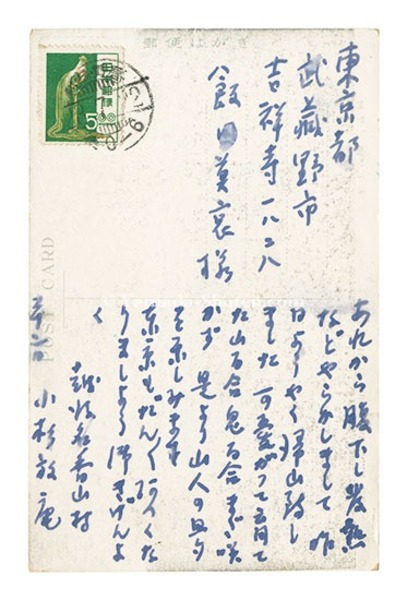 郵便はがき
日本郵便
5
POST CARD
東京都
武蔵野市
吉祥寺一八二八
飯田莫哀様
あれから腹下し発熱
などやらかしまして 昨
日ようやく帰山致し
ました 可愛がって育て
た山百合鬼百合まだ咲
かず 是より山人の旦夕
を楽しみます
東京もだん〱あつくな
りましよう 御きげんよ
く
越後名香山村
小杉放庵